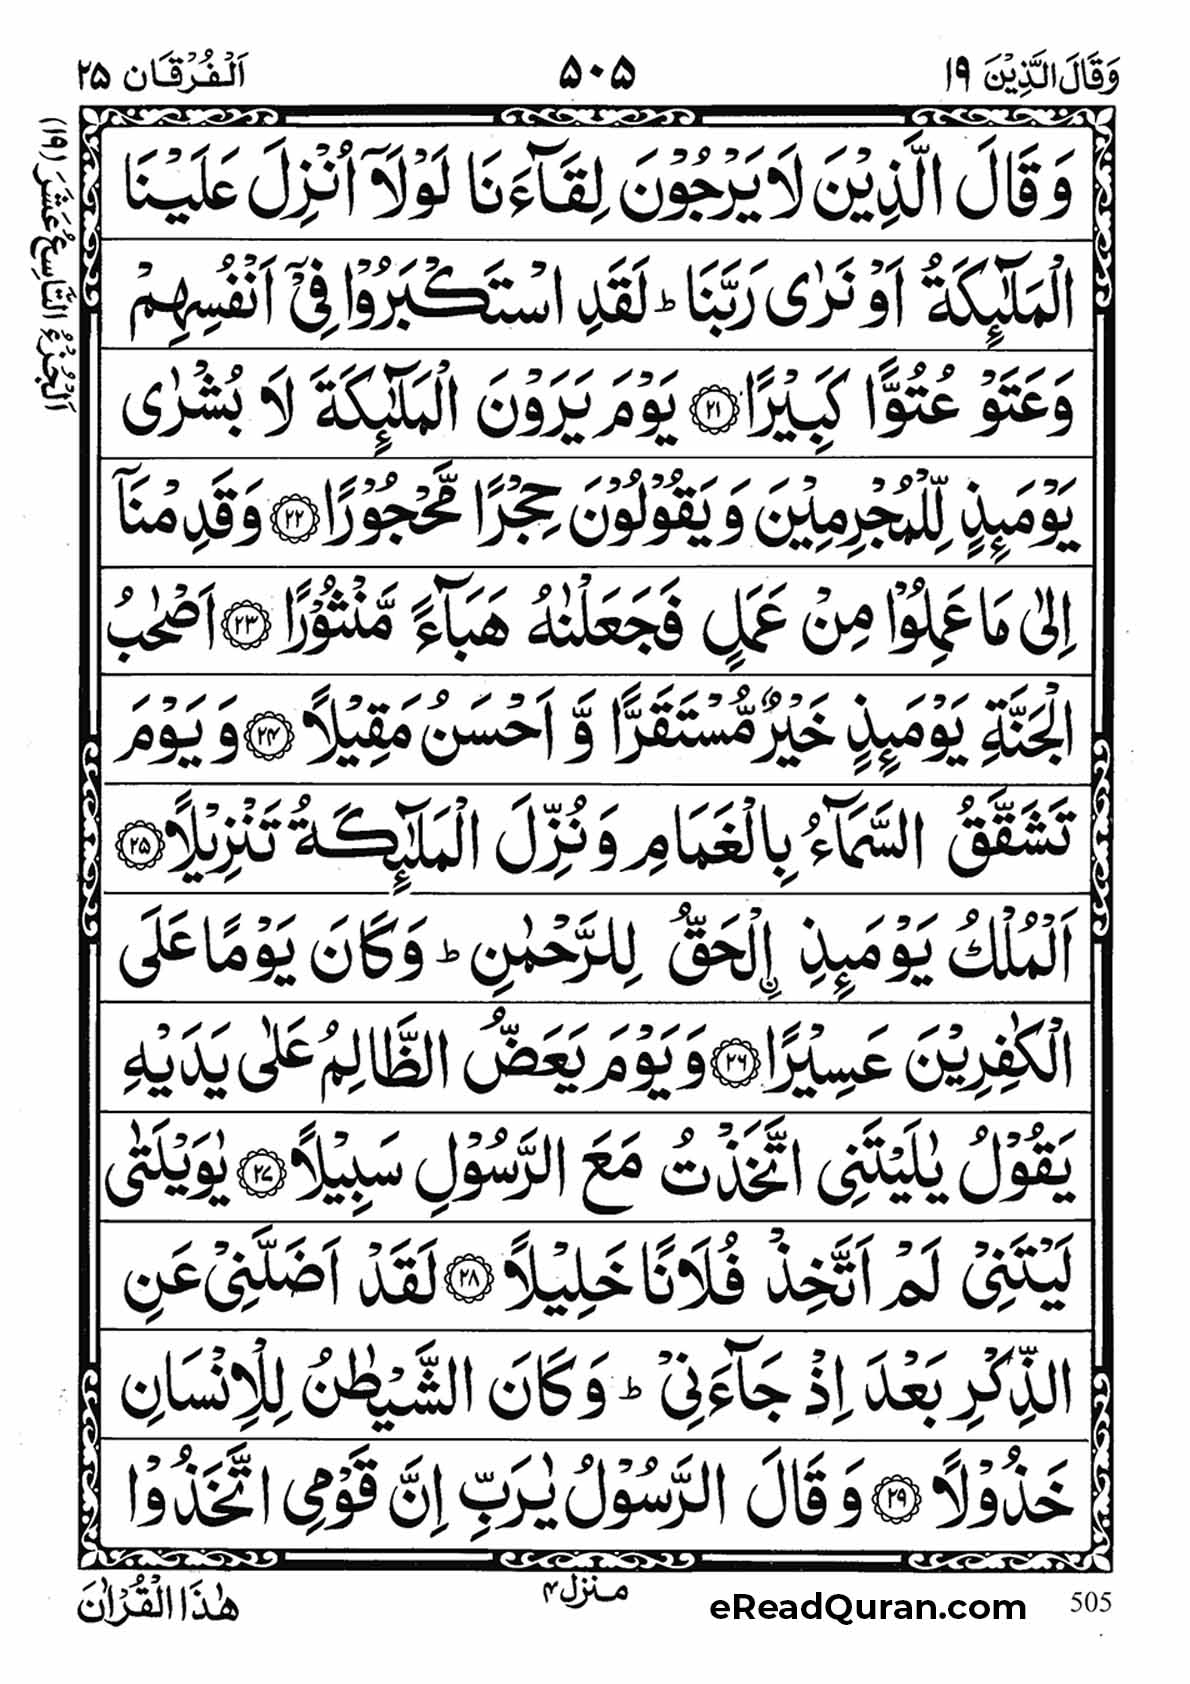 وَقَالَ الَّذِيْنَ ۱۹
۵۰۵
اَلْفُرْقَان ۲۵
اَلْجُزْءُ التَّاسِعُ عَشَرَ (۱۹)
وَقَالَ الَّذِيْنَ لَا يَرْجُوْنَ لِقَآءَنَا لَوْلَاۤ اُنْزِلَ عَلَيْنَا
الْمَلٰٓئِكَةُ اَوْ نَرٰى رَبَّنَا ؕ لَقَدِ اسْتَكْبَرُوْا فِيْۤ اَنْفُسِهِمْ
وَعَتَوْ عُتُوًّا كَبِيْرًا ۲۱ يَوْمَ يَرَوْنَ الْمَلٰٓئِكَةَ لَا بُشْرٰى
يَوْمَئِذٍ لِّلْمُجْرِمِيْنَ وَيَقُوْلُوْنَ حِجْرًا مَّحْجُوْرًا ۲۲ وَقَدِمْنَاۤ
اِلٰى مَا عَمِلُوْا مِنْ عَمَلٍ فَجَعَلْنٰهُ هَبَآءً مَّنْثُوْرًا ۲۳ اَصْحٰبُ
الْجَنَّةِ يَوْمَئِذٍ خَيْرٌ مُّسْتَقَرًّا وَّاَحْسَنُ مَقِيْلًا ۲۴ وَيَوْمَ
تَشَقَّقُ السَّمَآءُ بِالْغَمَامِ وَنُزِّلَ الْمَلٰٓئِكَةُ تَنْزِيْلًا ۲۵
اَلْمُلْكُ يَوْمَئِذِ ۨالْحَقُّ لِلرَّحْمٰنِ ؕ وَكَانَ يَوْمًا عَلَى
الْكٰفِرِيْنَ عَسِيْرًا ۲۶ وَيَوْمَ يَعَضُّ الظَّالِمُ عَلٰى يَدَيْهِ
يَقُوْلُ يٰلَيْتَنِى اتَّخَذْتُ مَعَ الرَّسُوْلِ سَبِيْلًا ۲۷ يٰوَيْلَتٰى
لَيْتَنِيْ لَمْ اَتَّخِذْ فُلَانًا خَلِيْلًا ۲۸ لَقَدْ اَضَلَّنِيْ عَنِ
الذِّكْرِ بَعْدَ اِذْ جَآءَنِيْ ؕ وَكَانَ الشَّيْطٰنُ لِلْاِنْسَانِ
خَذُوْلًا ۲۹ وَقَالَ الرَّسُوْلُ يٰرَبِّ اِنَّ قَوْمِى اتَّخَذُوْا
هٰذَا الْقُرْاٰنَ
منزل ۴
eReadQuran.com
505